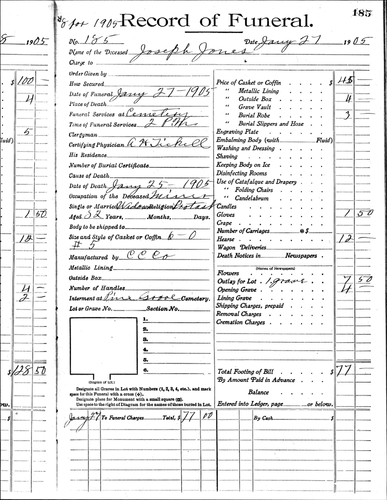 185
8 1905
& For 1905 Record of Funeral.
No. 185 Date Jany 27 1905
Name of the Deceased Joseph Jones
Charge to
Order Given by
How Secured
Date of Funeral Jany 27 - 1905
Place of Death
Funeral Services at Cemetery
Time of Funeral Services 2 P.M.
Clergyman
Certifying Physician
His Residence
Number of Burial Certificate
Cause of Death
Date of Death Jany 25 - 1905
Occupation of the Deceased Miner
Single or Married Religion
Aged 52 Years, Months, Days.
Body to be shipped to
Size and Style of Casket or Coffin 6-0
# 5
Manufactured by C C Co
Metallic Lining
Outside Box
Number of Handles
Interment at Pine Grove Cemetery.
Lot or Grave No. Section No.
1.
2.
3.
4.
5.
6.
(Diagram of Lot.)
Designate all Graves in Lot with Numbers (1, 2, 3, 4, etc.), and mark
space for this Funeral with a cross (+).
Designate place for Monument with a small square (□).
Use space to the right of Diagram for the names of those buried in Lot.
Jany 27 To Funeral Charges Total, $ 77 00
Price of Casket or Coffin $ 45
" Metallic Lining
" Outside Box 4
" Grave Vault
" Burial Robe 3
" Burial Slippers and Hose
Engraving Plate
Embalming Body (with Fluid)
Washing and Dressing
Shaving
Keeping Body on Ice
Disinfecting Rooms
Use of Catafalque and Drapery
" Folding Chairs
" Candelabrum
Candles
Gloves 1 50
Crape
Number of Carriages @ $
Hearse 12 —
Wagon Deliveries
Death Notices in Newspapers
(Names of Newspapers)
Flowers
Outlay for Lot 1 Grave 7 50
Opening Grave 4
Lining Grave
Shipping Charges, prepaid
Removal Charges
Cremation Charges
Total Footing of Bill $ 77
By Amount Paid in Advance
Balance
Entered into Ledger, page or below.
By Cash $
$ 100
4
5
Fluid)
1 50
12 —
4 —
2 —
$ 128 50
low.